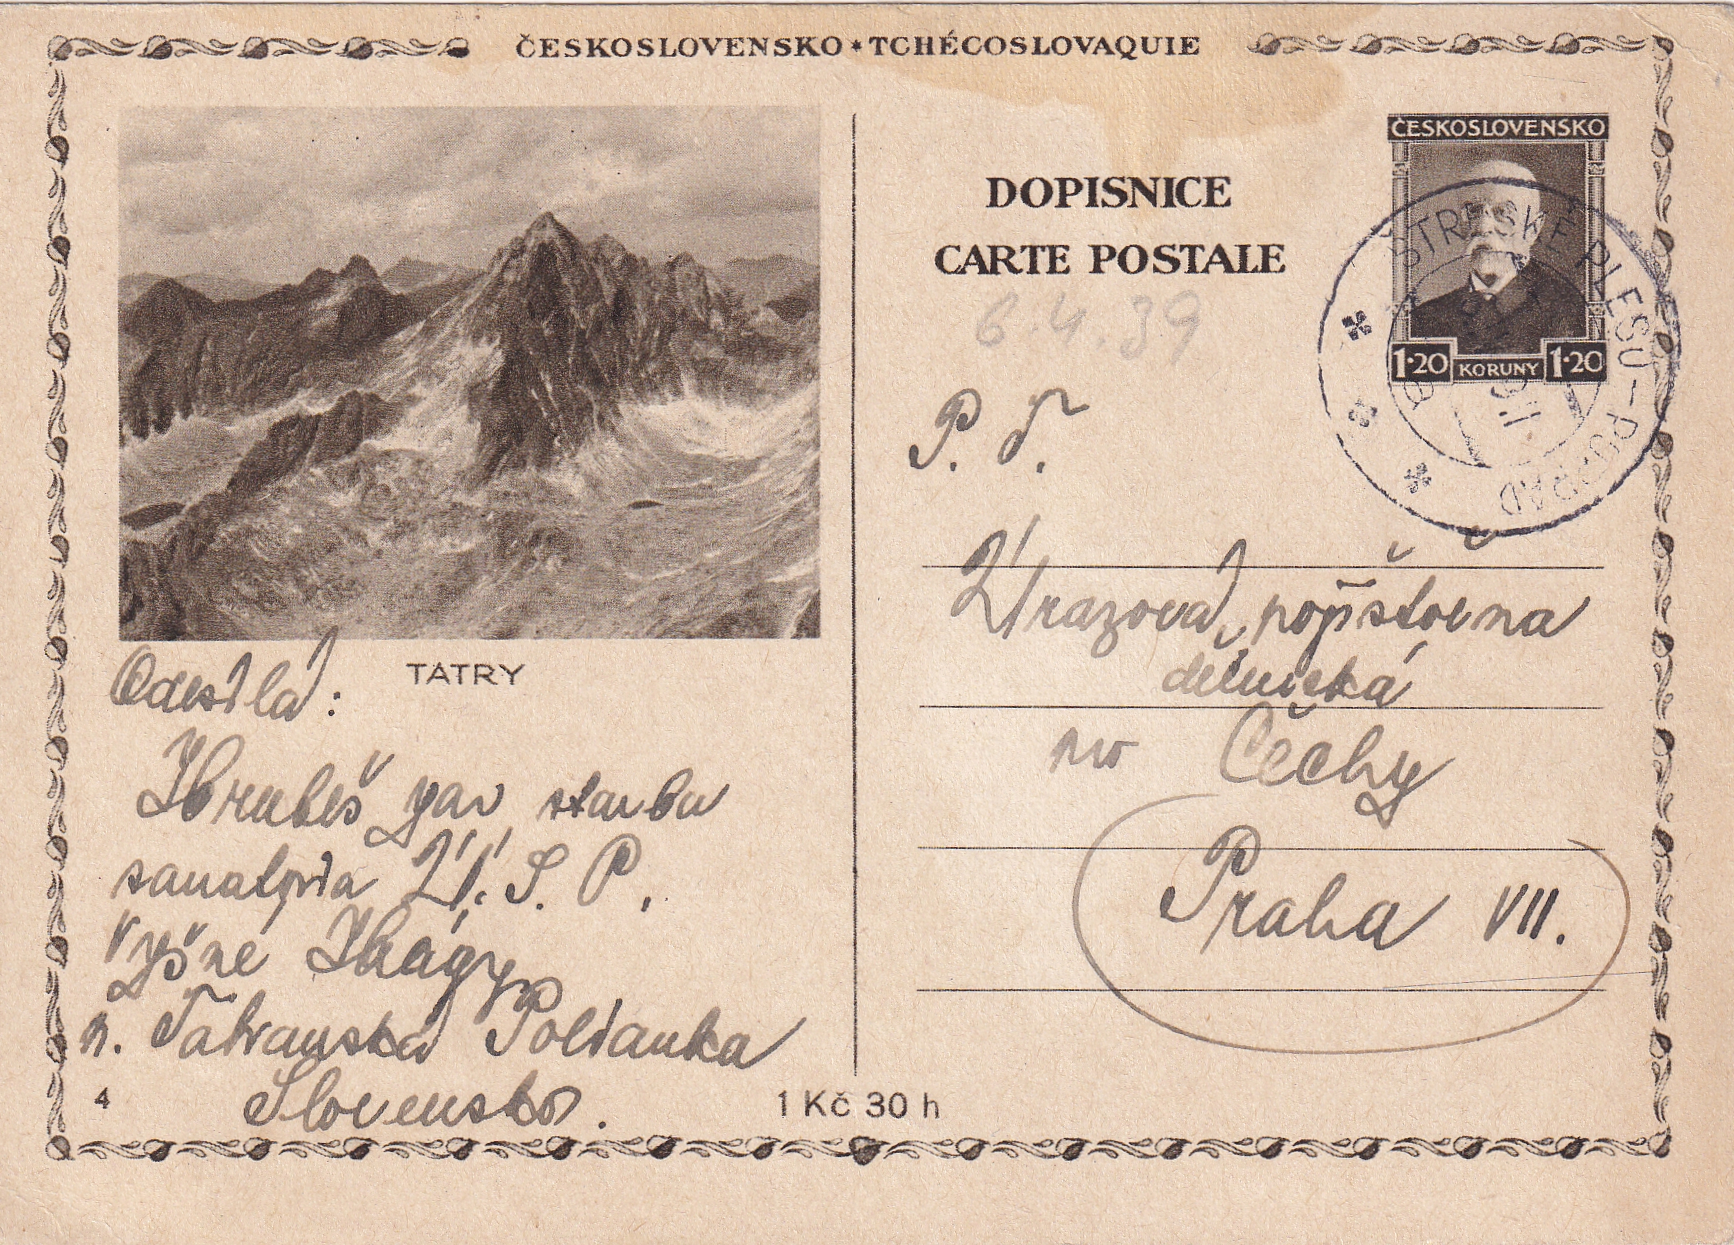 ČESKOSLOVENSKO * TCHÉCOSLOVAQUIE
ČESKOSLOVENSKO
1·20 KORUNY 1·20
ŠTRBSKÉ PLESO-POPRAD
DOPISNICE
CARTE POSTALE
6.4.39
P. T.
Úrazová pojišťovna
dělnická
pro Čechy
Praha VII.
TATRY
Odesílá:
Hrubeš stavba
sanatoria Ú. S. P.
Vyšné Hágy
p. Tatranská Polianka
Slovensko.
4
1 Kč 30 h